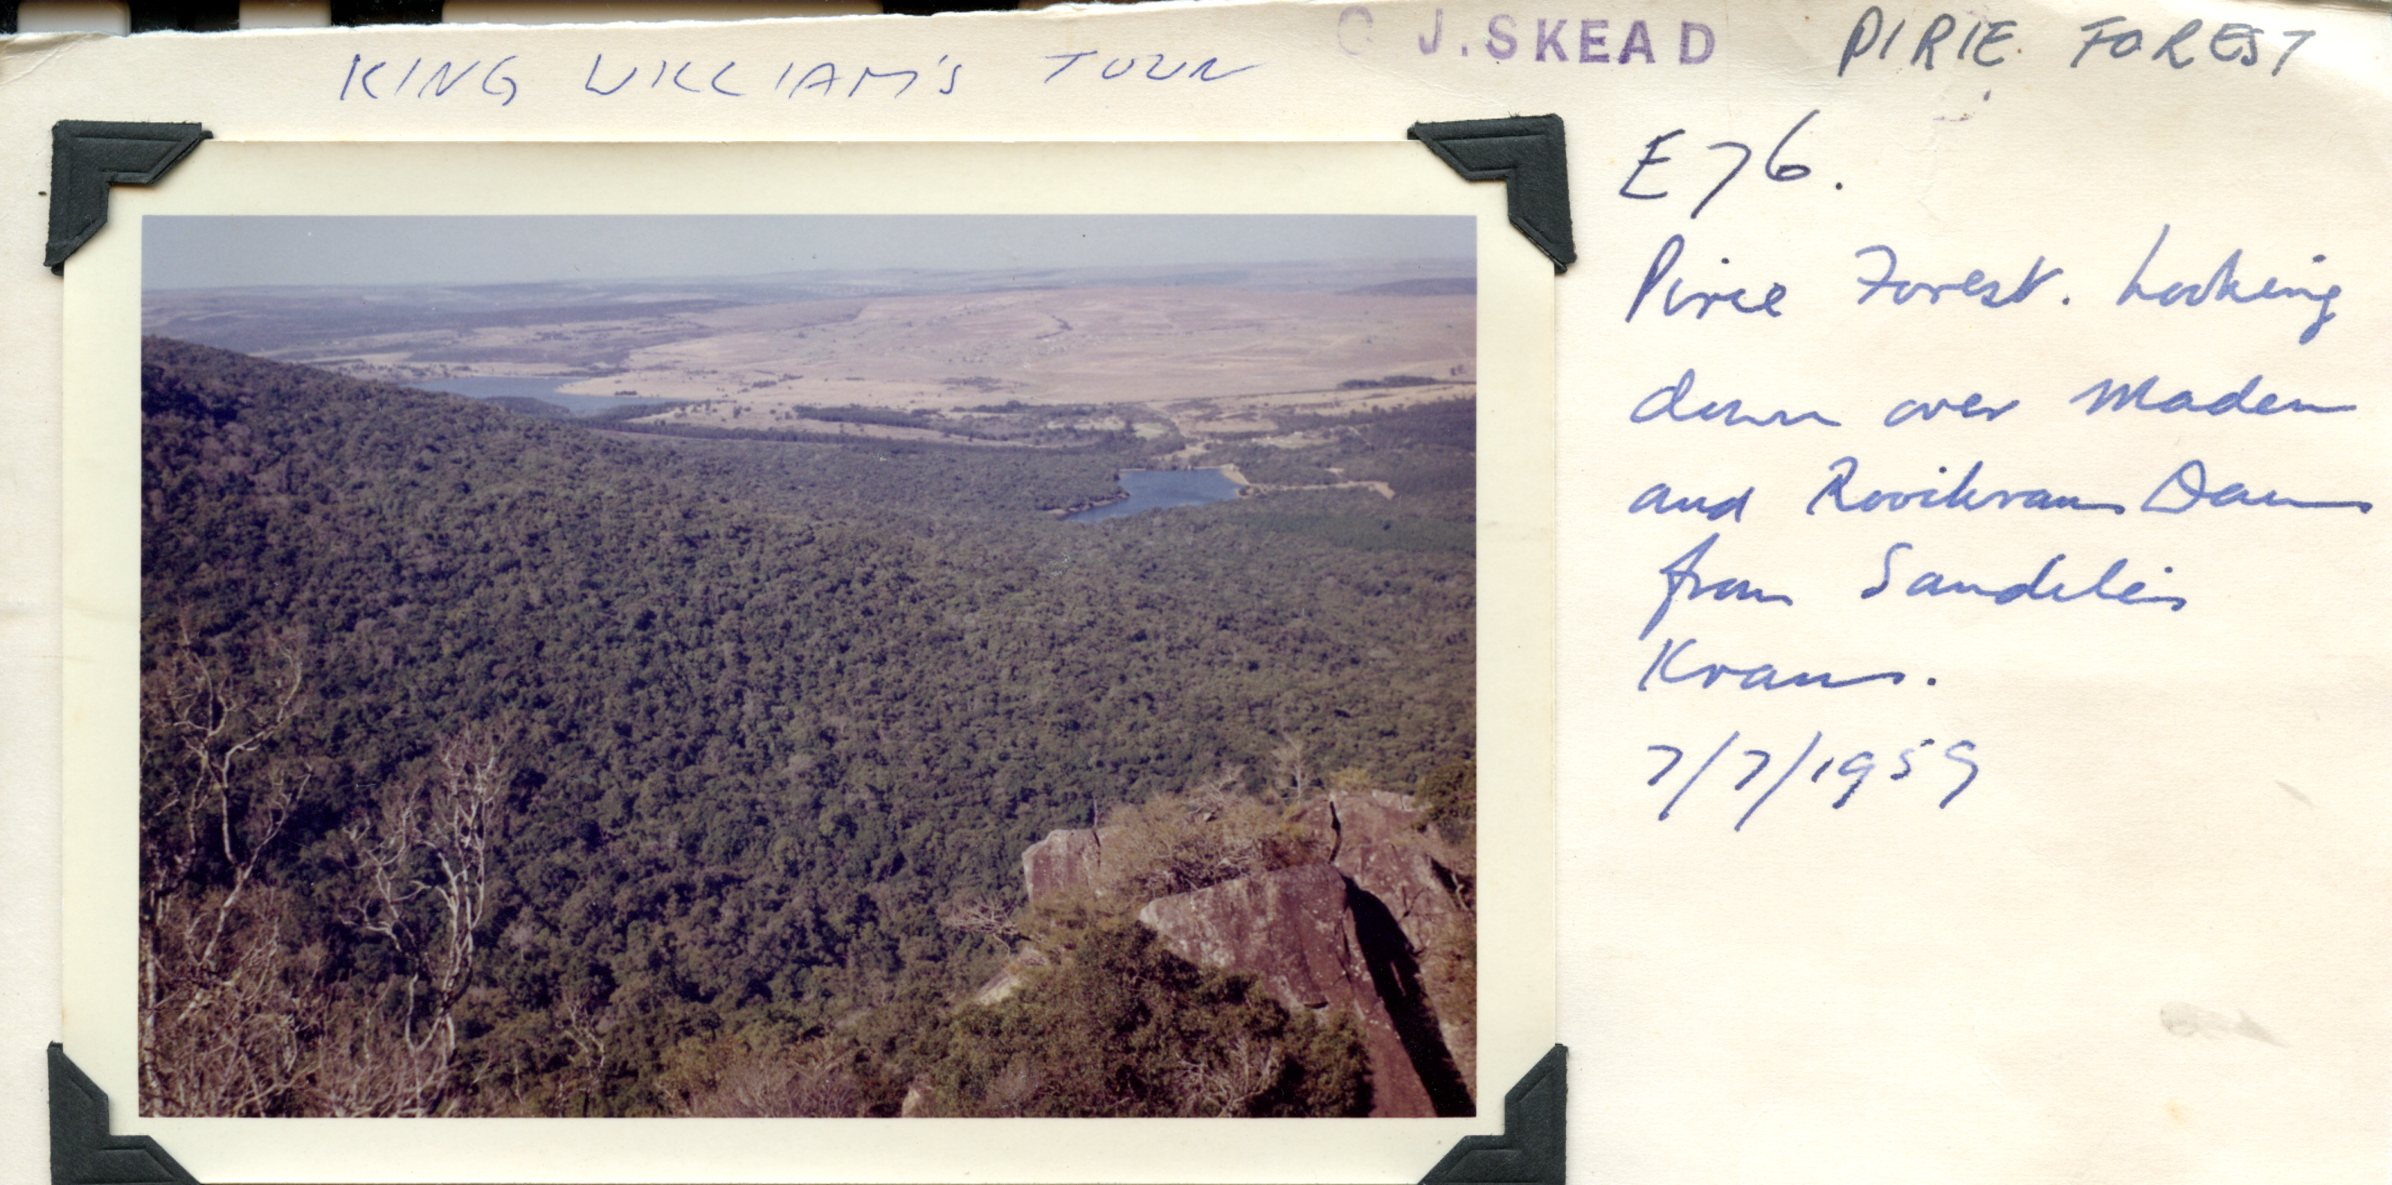 KING WILLIAM'S TOWN
C J. SKEAD
PIRIE FOREST
E76.
Pirie Forest. Looking
down over Maden
and Rooikrans Dams
from Sandili's
Krans.
7/7/1959